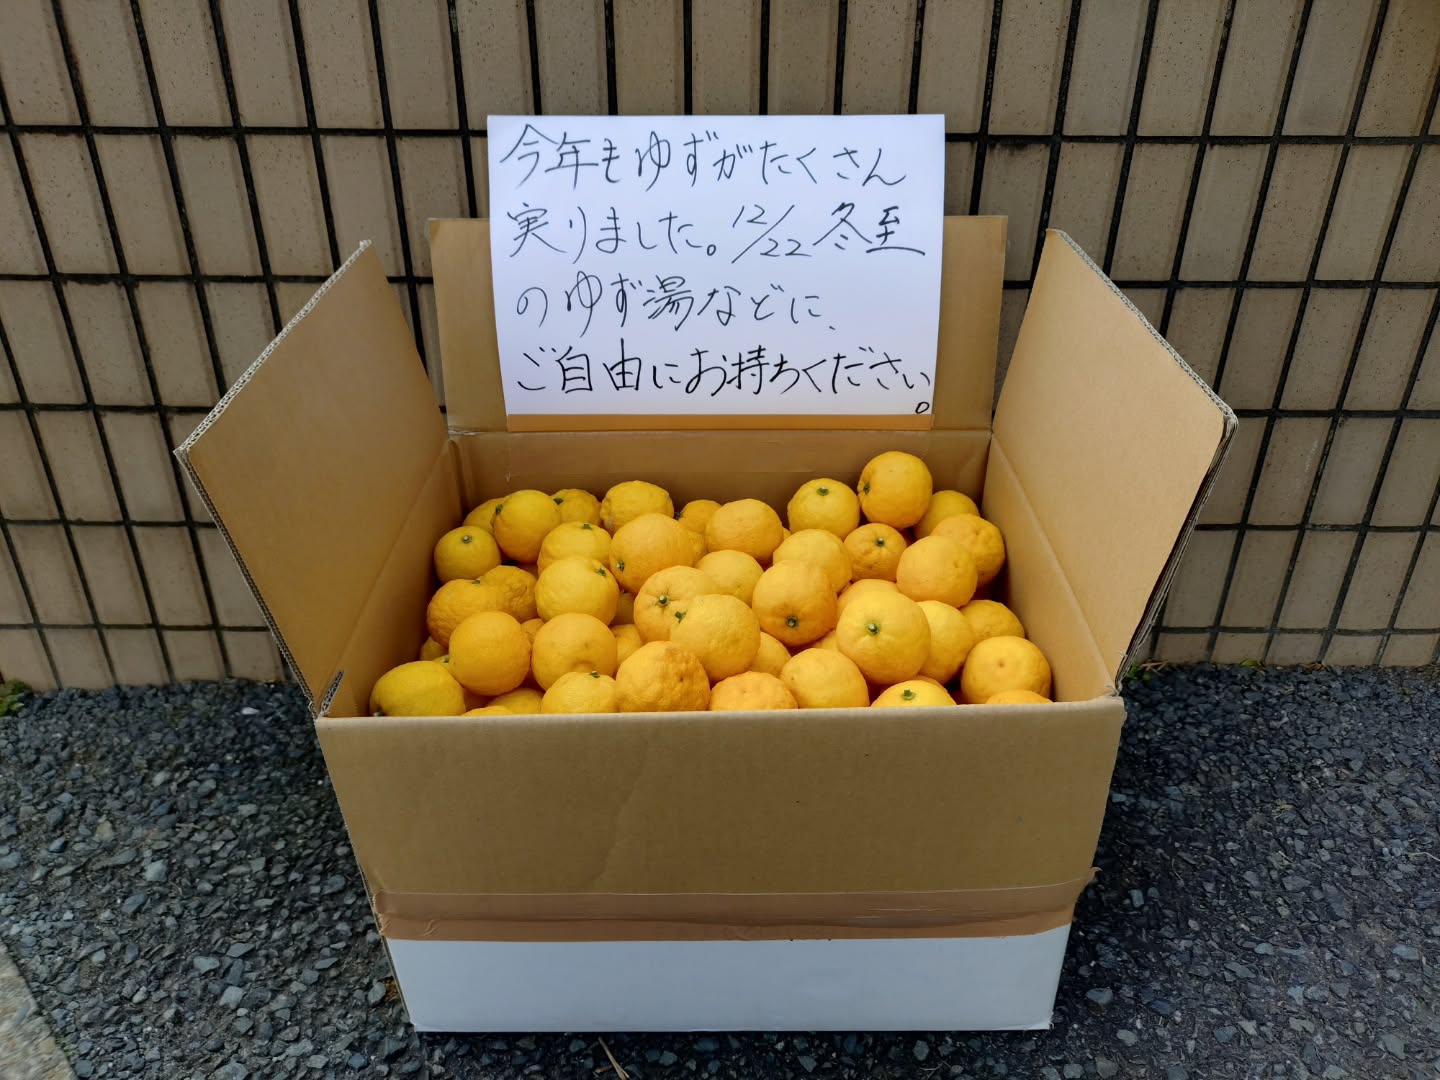 今年もゆずがたくさん
実りました。12/22 冬至
のゆず湯などに、
ご自由にお持ちください。